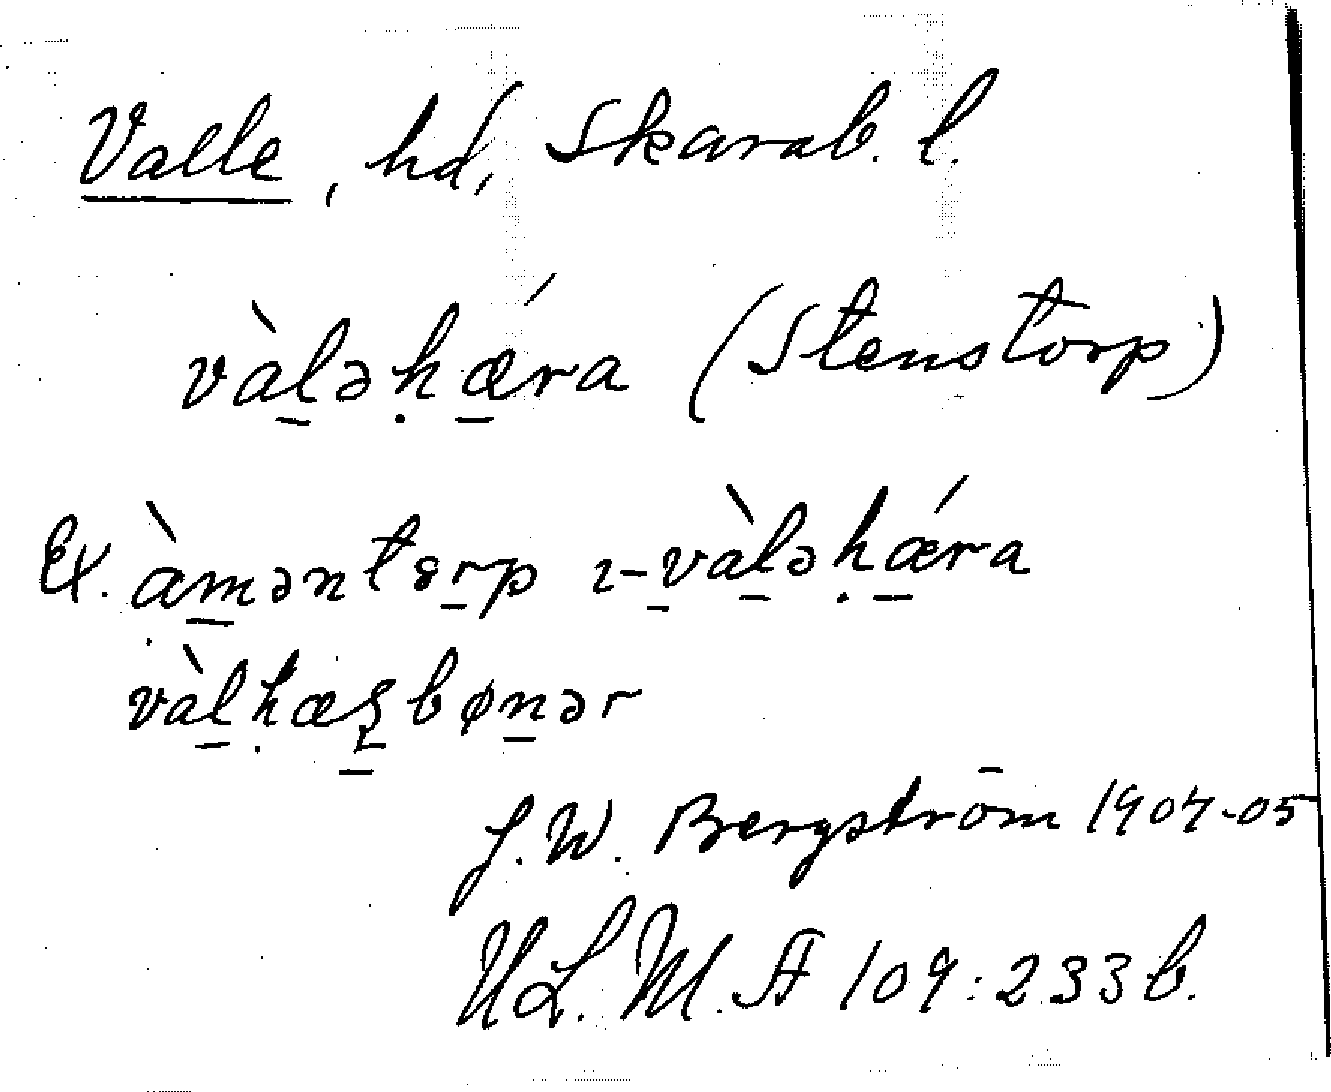 Valle, hd, Skarab. l.
vàl̠əḥǽ̠ra (Stenstorp)
Ex. àm̠əntɞr̠p ı-v̠àl̠əḥǽ̠ra
vàl̠ḥæʂ̠bøn̠ər
J. W. Bergström 1904-05
ULM. A 109:233 b.